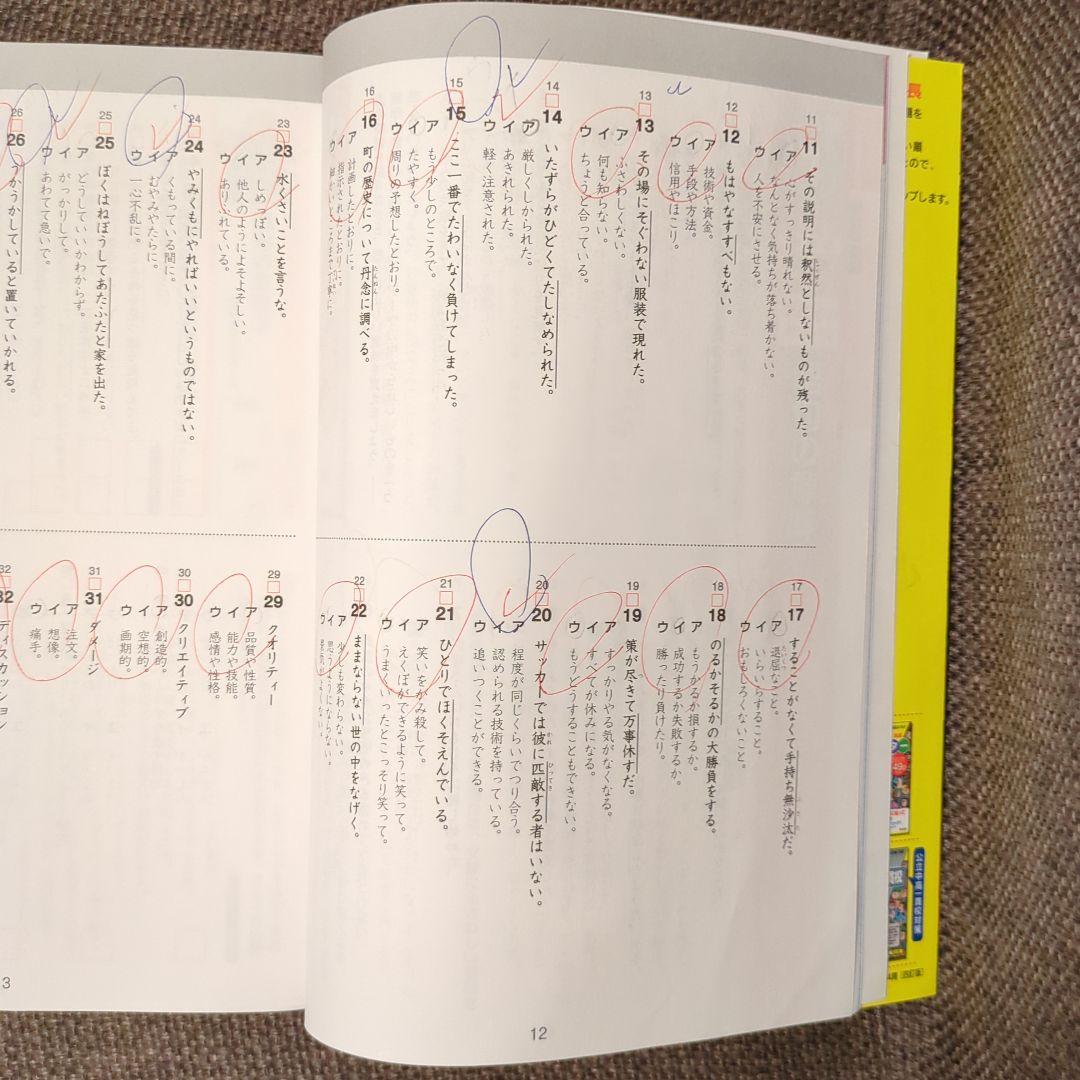 11
11 その説明には釈然としないものが残った。
ア 心がすっきり晴れない。
イ なんとなく気持ちが落ち着かない。
ウ 人を不安にさせる。
12
12 もはやなすすべもない。
ア 技術や資金。
イ 手段や方法。
ウ 信用やほこり。
13
13 その場にそぐわない服装で現れた。
ア ふさわしくない。
イ 何も知らない。
ウ ちょうど合っている。
14
14 いたずらがひどくてたしなめられた。
ア 厳しくしかられた。
イ あきれられた。
ウ 軽く注意された。
15
15 ここ一番でたわいなく負けてしまった。
ア もう少しのところで。
イ たやすく。
ウ 周りの予想したとおり。
16
16 町の歴史について丹念に調べる。
たんねん
ア 計画したとおりに。
イ 指示されたとおりに。
ウ
17
17 することがなくて手持ち無沙汰だ。
ア 退屈なこと。
イ いらいらすること。
ウ おもしろくないこと。
18
18 のるかそるかの大勝負をする。
ア もうかるか損するか。
イ 成功するか失敗するか。
ウ 勝ったり負けたり。
19
19 策が尽きて万事休すだ。
ア すっかりやる気がなくなる。
イ すべてが休みになる。
ウ もうどうすることもできない。
20
20 サッカーでは彼に匹敵する者はいない。
かれ
ひってき
ア 程度が同じくらいでつり合う。
イ 認められる技術を持っている。
ウ 追いつくことができる。
21
21 ひとりでほくそえんでいる。
ア 笑いをかみ殺して。
イ えくぼができるように笑って。
ウ うまくいったとこっそり笑って。
22
22 ままならない世の中をなげく。
ア 少しも変わらない。
イ 思うようにならない。
ウ
12
23
23 水くさいことを言うな。
ア しめっぽい。
イ 他人のようによそよそしい。
ウ ありふれている。
24
24 やみくもにやればいいというものではない。
ア くもっている間に。
イ むやみやたらに。
ウ 一心不乱に。
25
25 ぼくはねぼうしてあたふたと家を出た。
ア どうしていいかわからず。
イ がっかりして。
ウ あわてて急いで。
26
26 うかうかしていると置いていかれる。
29
29 クオリティー
ア 品質や性質。
イ 能力や技能。
ウ 感情や性格。
30
30 クリエイティブ
ア 創造的。
イ 空想的。
ウ 画期的。
31
31 ダメージ
ア 注文。
イ 想像。
ウ 痛手。
32
32 ディスカッション
3
長
を
ので、
ップします。
公立中高一貫校対策